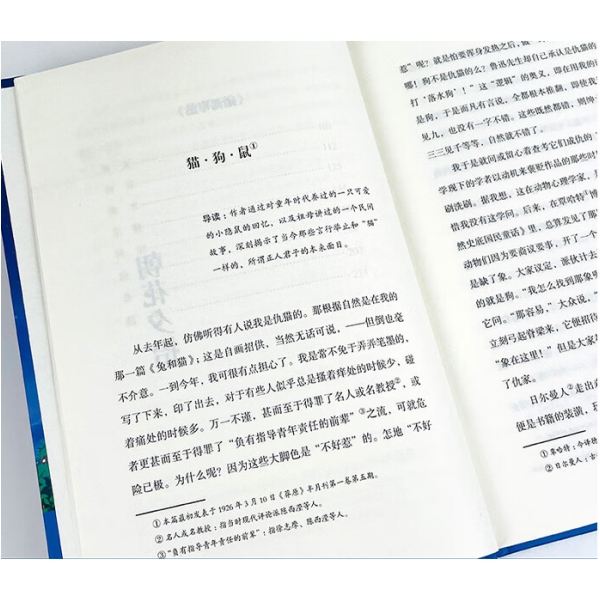 猫·狗·鼠①
导读：作者通过对童年时代养过的一只可爱
的小隐鼠的回忆，以及祖母讲过的一个民间
故事，深刻揭示了当今那些言行举止和“猫”
一样的，所谓正人君子的本来面目。
从去年起，仿佛听得有人说我是仇猫的。那根据自然是在我的
那一篇《兔和猫》；这是自画招供，当然无话可说，——但倒也毫
不介意。一到今年，我可很有点担心了。我是常不免于弄弄笔墨的，
写了下来，印了出去，对于有些人似乎总是搔着痒处的时候少，碰
着痛处的时候多。万一不谨，甚而至于得罪了名人或名教授②，或
者更甚而至于得罪了“负有指导青年责任的前辈”③之流，可就危
险已极。为什么呢？因为这些大脚色是“不好惹”的。怎地“不好
①本篇最初发表于1926年3月10日《莽原》半月刊第一卷第五期。
②名人或名教授：指当时现代评论派陈西滢等人。
③“负有指导青年责任的前辈”：指徐志摩、陈西滢等人。
惹”呢？就是怕要浑身发热之后，做
哪！狗不是仇猫的么？鲁迅先生却自己承认是仇猫的
打‘落水狗’！”这“逻辑”的奥义，即在用我的
是狗，于是而凡有言说，全都根本推翻，即使我
见九，也没有一字不错。这些既然都错，则绅
三三见千等等，自然就不错了。
我于是就间或留心着查考它们成仇的“
学现下的学者以动机来褒贬作品的那些时
刷洗刷。据我想，这在动物心理学家，是
惜我没有这学问。后来，在覃哈特①博
然史底国民童话》里，总算发见了那
动物们因为要商议要事，开了一个
是缺了象。大家议定，派伙计去
的就是狗。“我怎么找到那象
它问。“那容易，”大众说，“
立刻弓起脊梁来，它便招待
“象在这里！”但是大家
了仇家。
日尔曼人②走出
便是书籍的装潢，玩
①覃哈特：今译
②日尔曼人：古